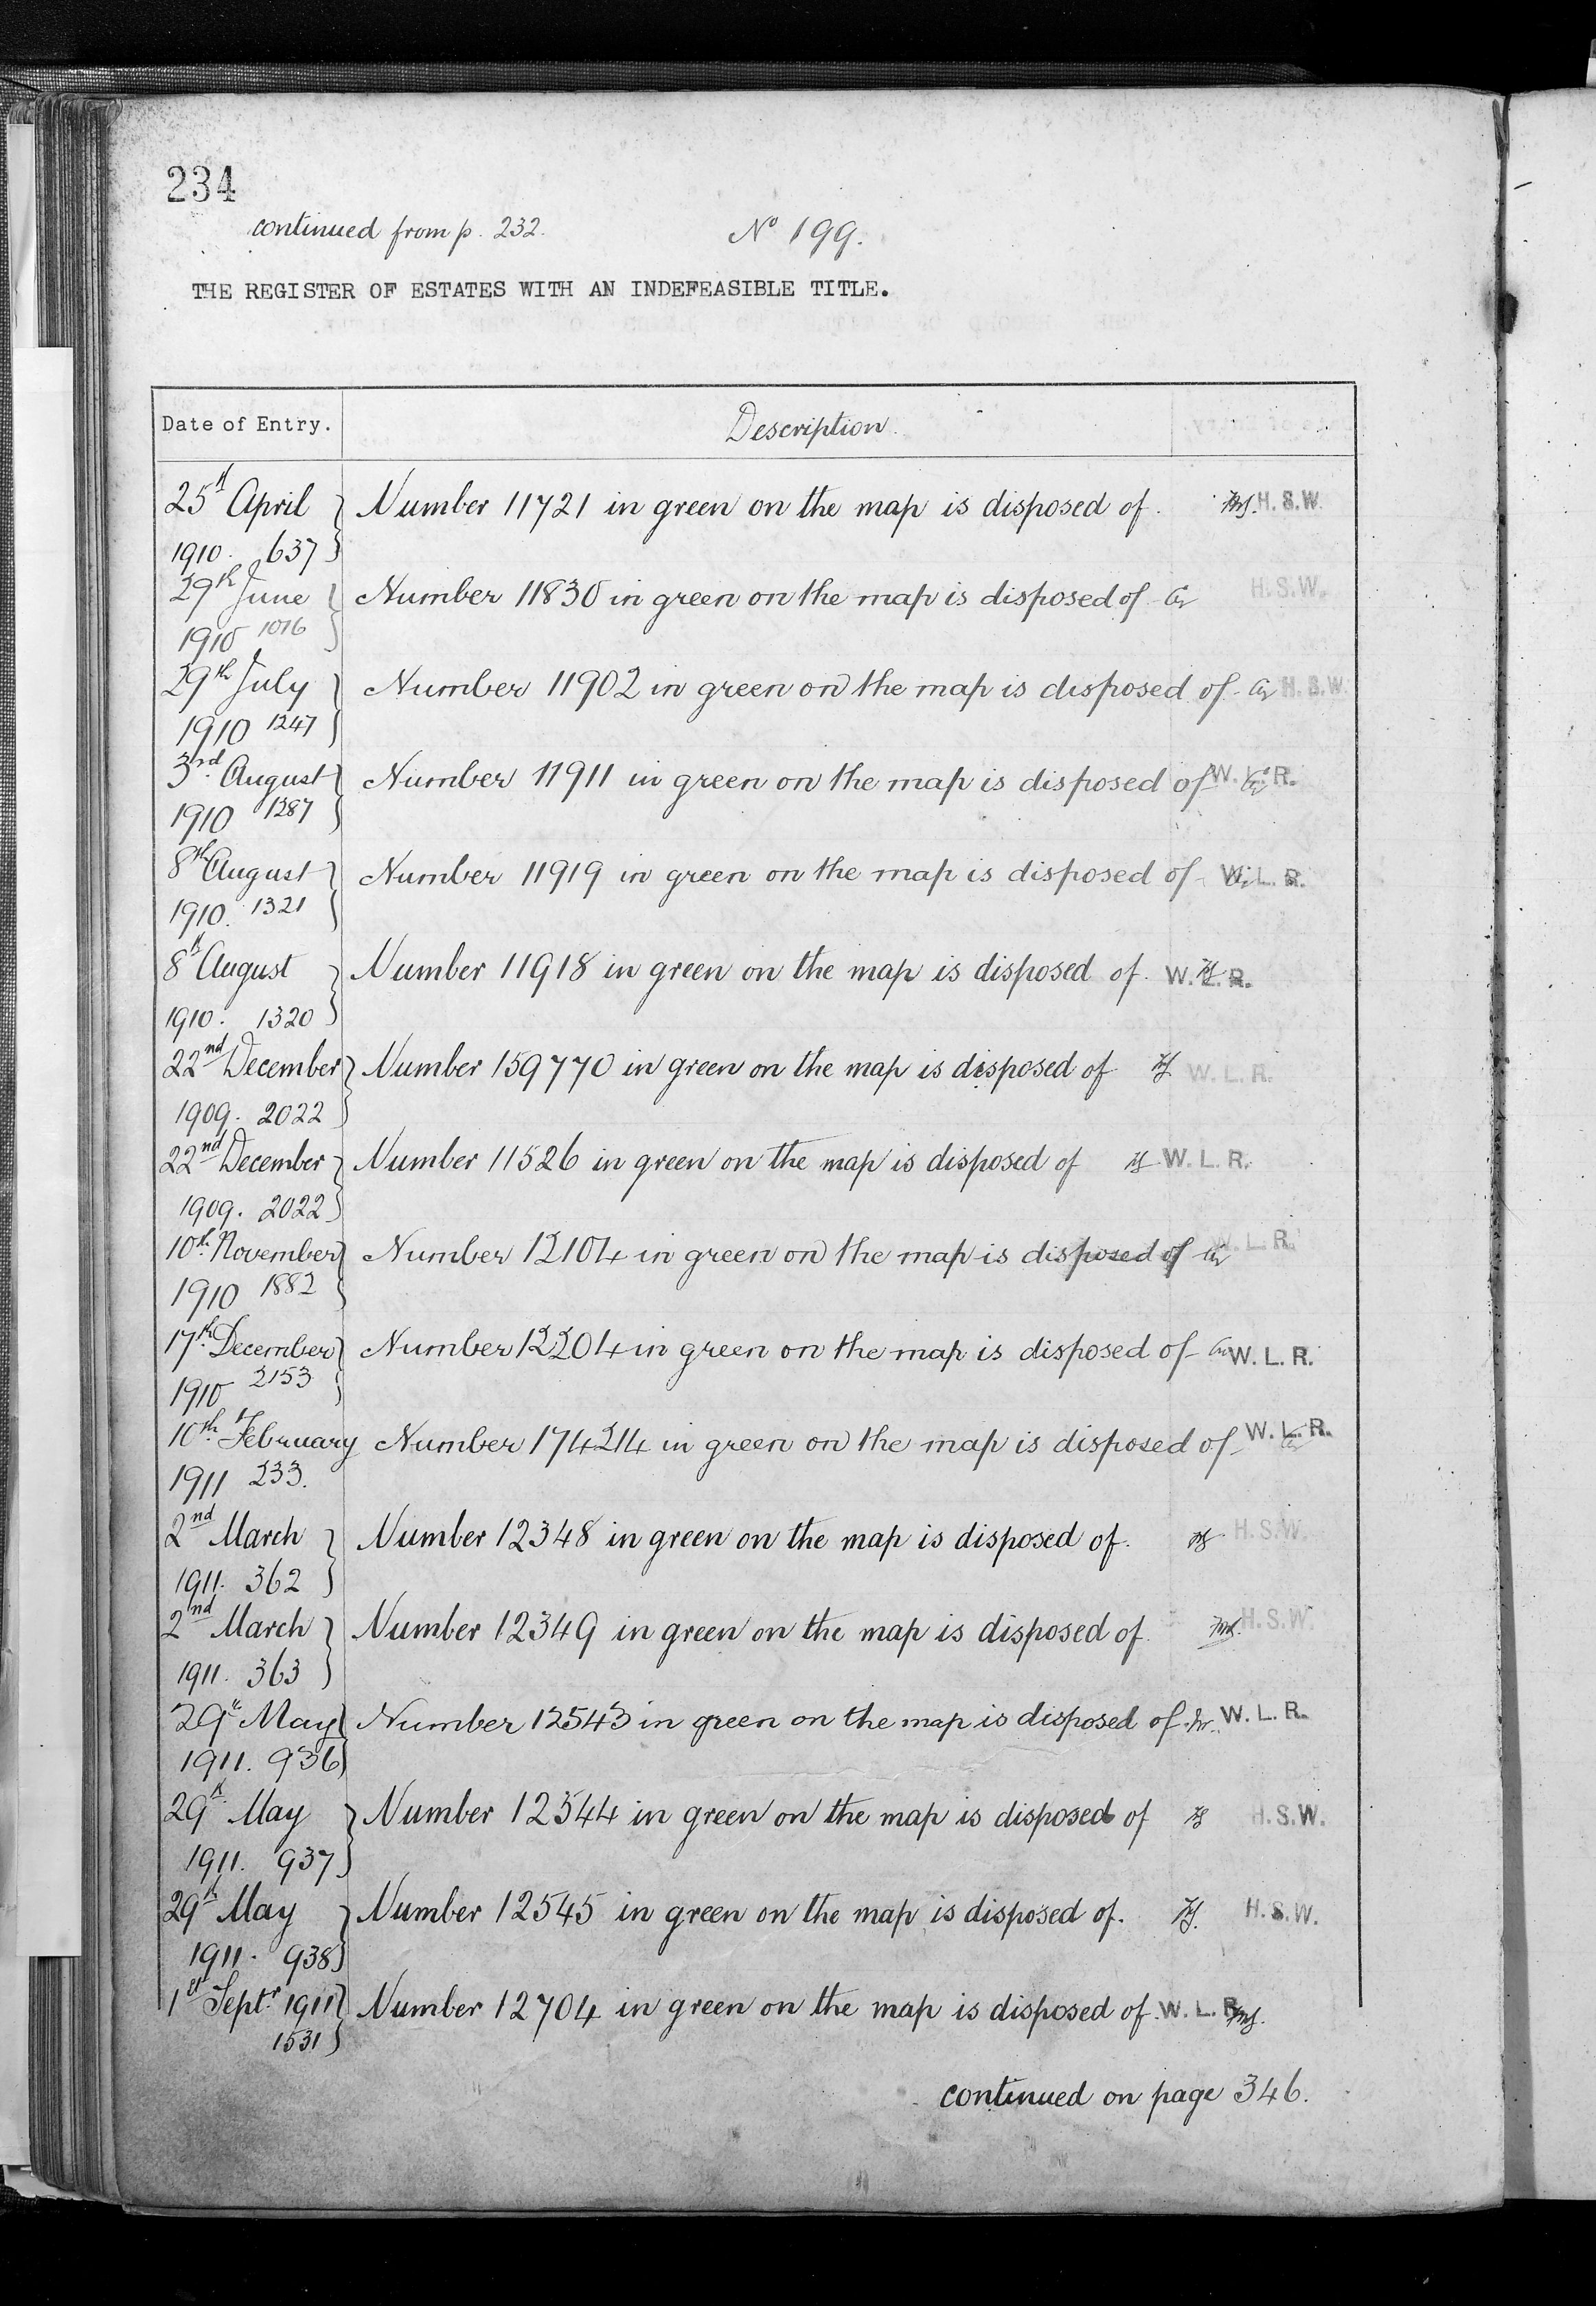 234
continued from p. 232.
No 199.
THE REGISTER OF ESTATES WITH AN INDEFEASIBLE TITLE.
Date of Entry. Description.
25th April Number 11721 in green on the map is disposed of. H.S.W.
1910. 637
29th June Number 11830 in green on the map is disposed of H.S.W.
1910 1076
29th July Number 11902 in green on the map is disposed of H.S.W.
1910 1247
3rd August Number 11911 in green on the map is disposed of W.L.R.
1910 1287
8th August Number 11919 in green on the map is disposed of W.L.R.
1910. 1321
8th August Number 11918 in green on the map is disposed of. W.L.R.
1910. 1320
22nd December Number 159770 in green on the map is disposed of W.L.R.
1909. 2022
22nd December Number 11526 in green on the map is disposed of W.L.R.
1909. 2022
10th November Number 12104 in green on the map is disposed of W.L.R.
1910 1882
17th December Number 12204 in green on the map is disposed of W.L.R.
1910 2153
10th February Number 174214 in green on the map is disposed of W.L.R.
1911 233.
2nd March Number 12348 in green on the map is disposed of. H.S.W.
1911. 362
2nd March Number 12349 in green on the map is disposed of H.S.W.
1911. 363
29th May Number 12543 in green on the map is disposed of W.L.R.
1911. 936
29th May Number 12544 in green on the map is disposed of H.S.W.
1911. 937
29th May Number 12545 in green on the map is disposed of. H.S.W.
1911. 938
1st Septr 1911 Number 12704 in green on the map is disposed of. W.L.R.
1531
continued on page 346.